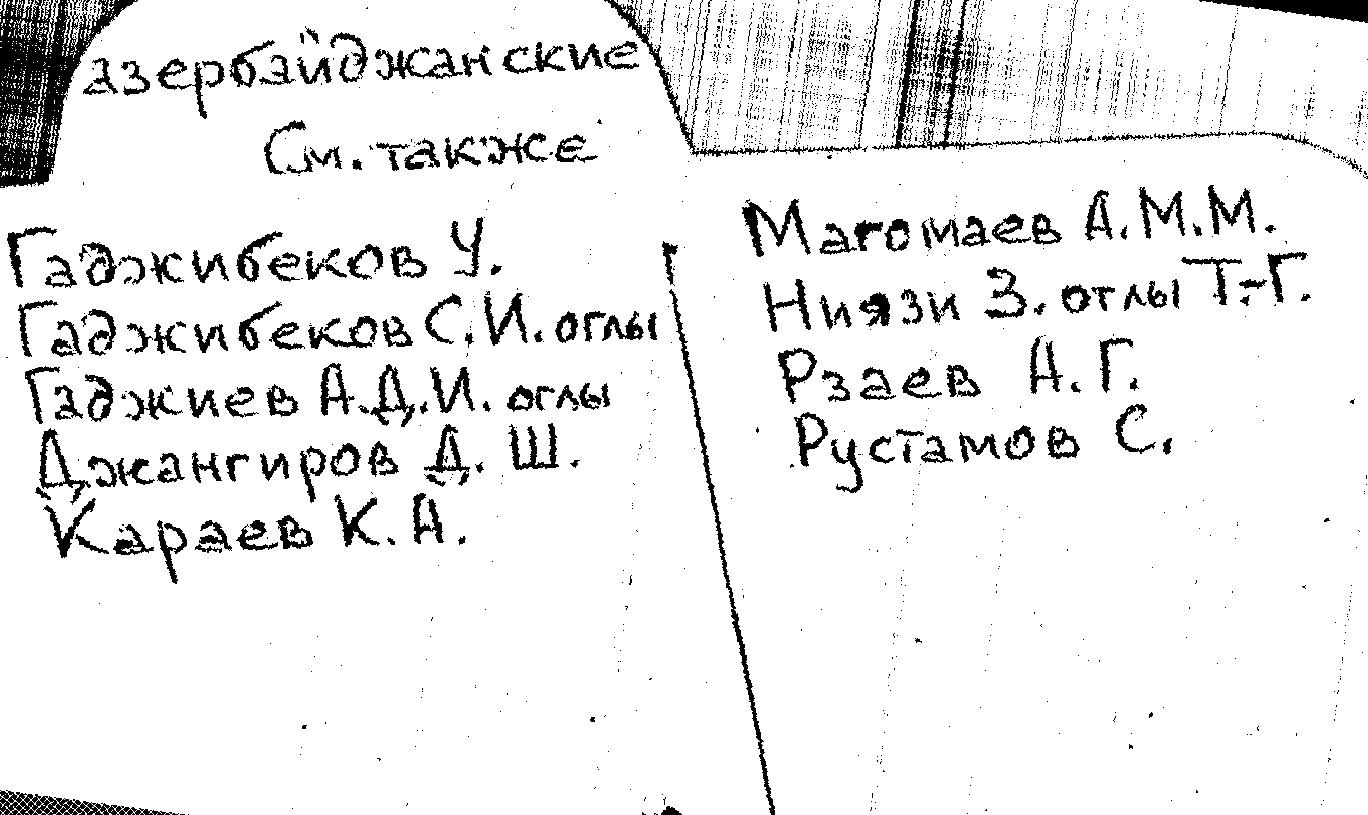 азербайджанские
См. также
Гаджибеков У.
Гаджибеков С. И. оглы
Гаджиев А.Д.И. оглы
Джангиров Д. Ш.
Караев К. А.
Магомаев А.М.М.
Ниязи З. оглы Т.-Г.
Рзаев А. Г.
Рустамов С.